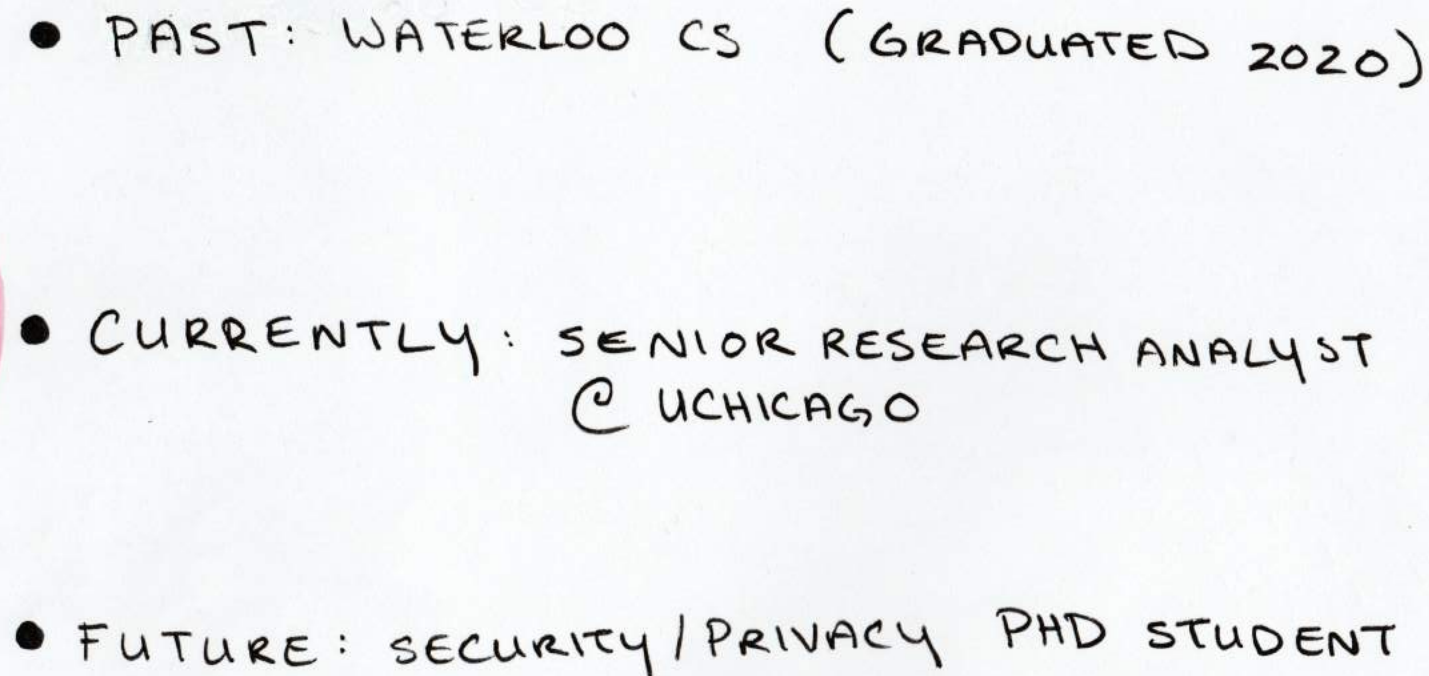 • PAST: WATERLOO CS (GRADUATED 2020)
• CURRENTLY: SENIOR RESEARCH ANALYST
@ UCHICAGO
• FUTURE: SECURITY/PRIVACY PHD STUDENT